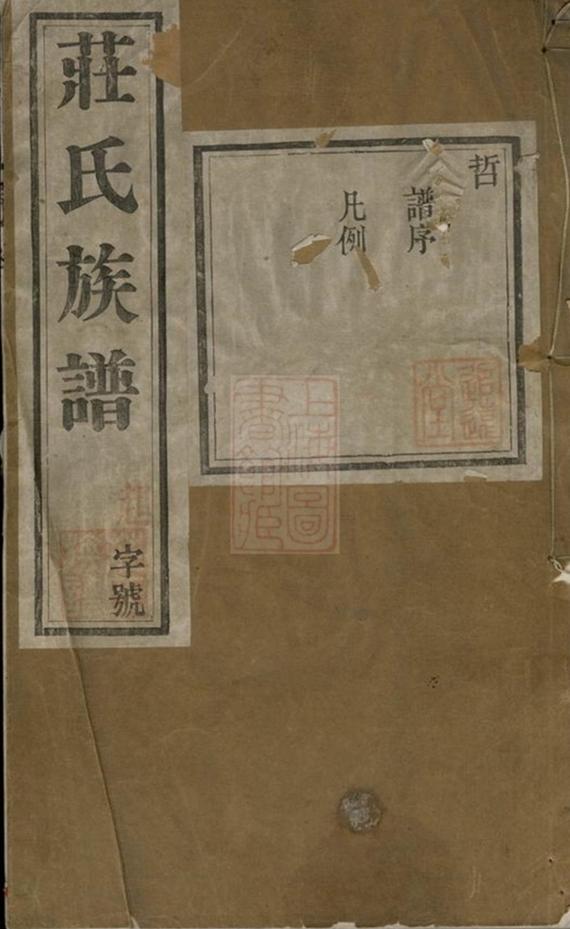 莊氏族譜
字號
哲
譜序
凡例
上海圖書館藏